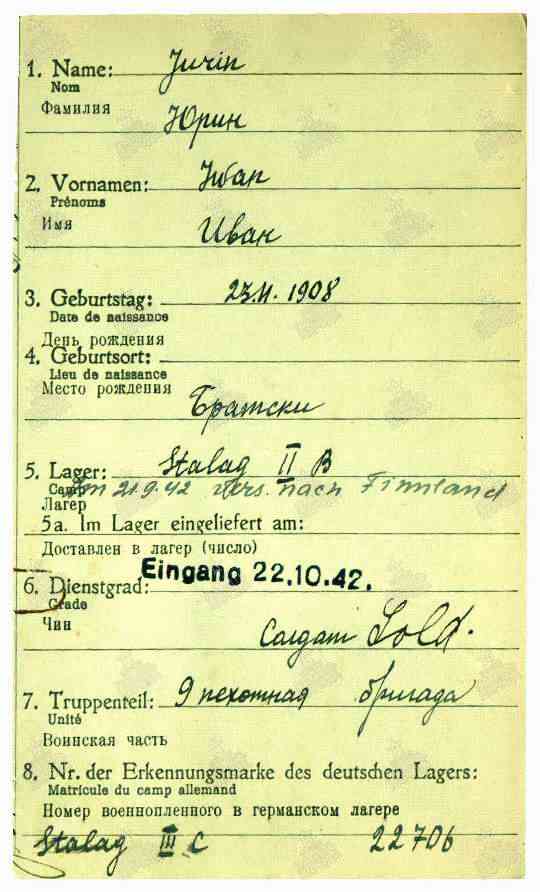 1. Name: Jurin
Nom
Фамилия
Юрин
2. Vornamen: Iwan
Prénoms
Имя
Иван
3. Geburtstag: 23.11.1908
Date de naissance
День рождения
4. Geburtsort:
Lieu de naissance
Место рождения
Братски
5. Lager: Stalag II B
Camp
Am 21.9.42 Vers. nach Finnland
Лагер
5a. Im Lager eingeliefert am:
Доставлен в лагер (число)
Eingang 22.10.42.
6. Dienstgrad:
Grade
Чин
Солдат Sold.
7. Truppenteil: 9 пехотная бригада
Unité
Воинская часть
8. Nr. der Erkennungsmarke des deutschen Lagers:
Matricule du camp allemand
Номер военнопленного в германском лагере
Stalag III C 22706